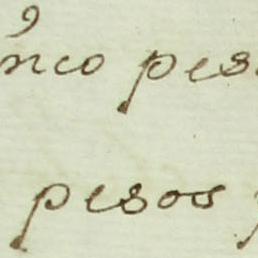 nco pes
pesos